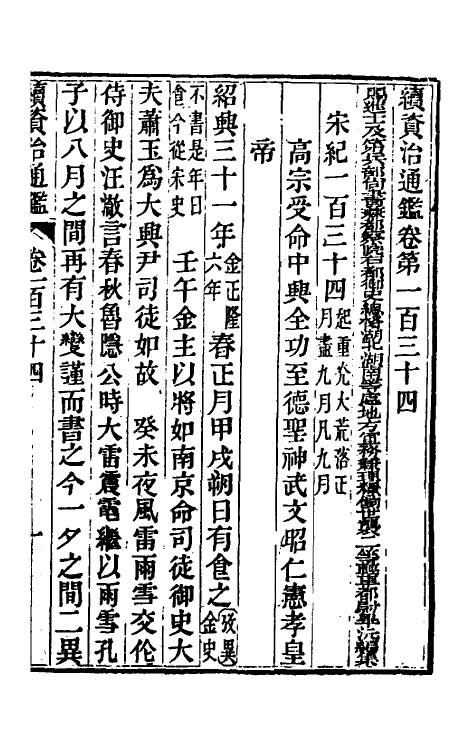 續資治通鑑卷第一百三十四
賜進士及第兵部尚書兼都察院右都御史總督湖北湖南等處地方軍務兼理糧餉世襲二等輕車都尉畢沅編集
宋紀一百三十四起重光大荒落正月盡九月凡九月
高宗受命中興全功至德聖神武文昭仁憲孝皇
帝
紹興三十一年金正隆六年春正月甲戌朔日有食之攷異金史
不書是年日食今從宋史 壬午金主以將如南京命司徒御史大
夫蕭玉為大興尹司徒如故 癸未夜風雷雨雪交作
侍御史汪澈言春秋魯隱公時大雷震電繼以雨雪孔
子以八月之間再有大變謹而書之今一夕之間二異
續資治通鑑 卷一百三十四 一